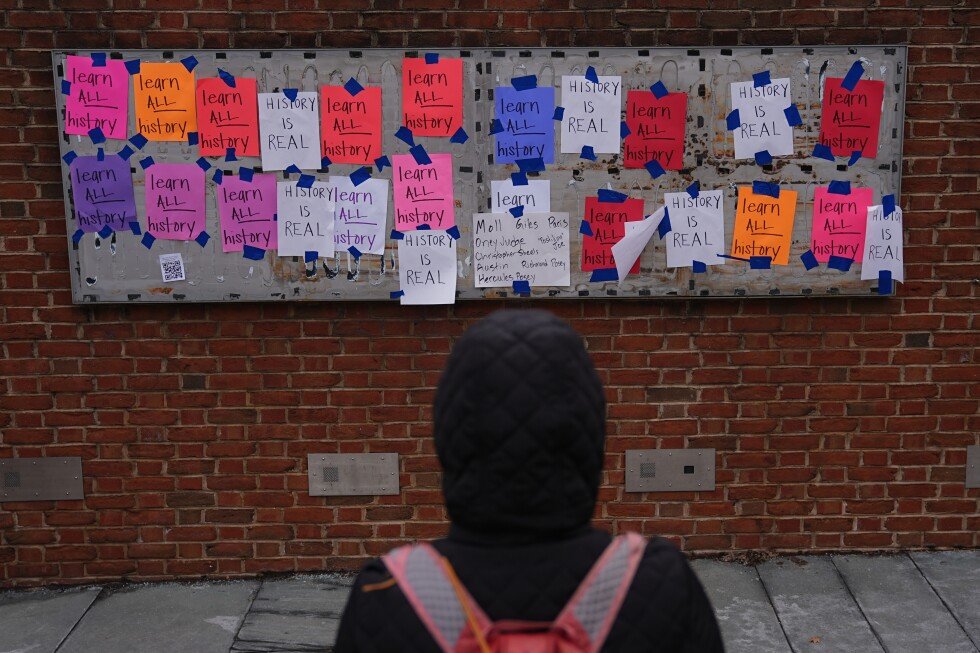 learn
ALL
history
learn
ALL
history
learn
ALL
history
HISTORY
IS
REAL
learn
ALL
history
learn
ALL
history
learn
ALL
history
HISTORY
IS
REAL
learn
ALL
history
HISTORY
IS
REAL
learn
ALL
history
learn
ALL
history
learn
ALL
history
learn
ALL
history
HISTORY
IS
REAL
learn
ALL
history
learn
ALL
history
HISTORY
IS
REAL
learn
ALL
Moll Giles Paris
Oney Judge Joe
Christopher Sheels
Austin Richmond Posey
Hercules Posey
learn
ALL
history
HISTORY
IS
REAL
learn
ALL
history
learn
ALL
history
HISTORY
IS
REAL